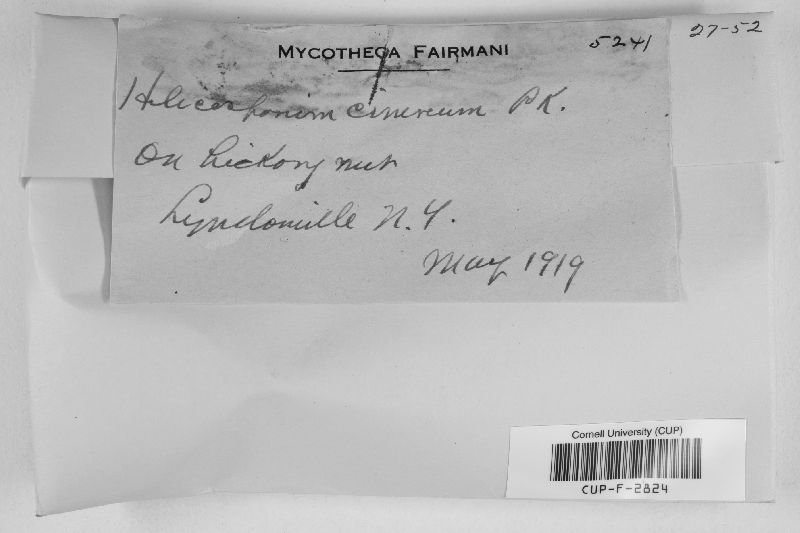 MYCOTHECA FAIRMANI
5241
27-52
Helicosporium cinereum PK.
On hickory nut
Lyndonville N.Y.
May 1919
Cornell University (CUP)
CUP-F-2824